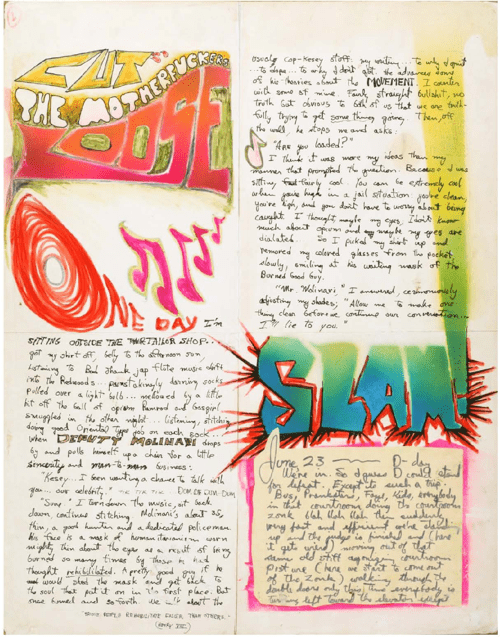 CUT
THE MOTHERFUCKERS
LOOSE
ONE DAY I'm
SITTING OUTSIDE THE TAILOR SHOP...
got my shirt off, belly to the afternoon sun,
listening to Bud Shank jap flute music drift
into the Redwoods... painstakingly darning socks
pulled over a light bulb... mellowed by a little
hit off the ball of opium Ramrod and Gassgirl
smuggled in the other night... listening, stitching
doing good Oriental type job on each sock...
when DEPUTY MOLINARI drops
by and pulls himself up a chair for a little
sincerity and man-to-man business:
"Kesey... I been waiting a chance to talk with
you... our celebrity." DOM DE DOM DOM
"Sure." I turn down the music, at sock
down continue stitching. Molinari's about 35,
thin, a good hunter and a dedicated policeman.
His face is a mask of humanitarianism worn
mighty thin about the eyes as a result of being
burned so many times by those he had
thought rehabilitated. A pretty good guy if he
would shed the mask and get back to
the soul that put it on in the first place. But
once burned and so forth. We talk about the
"SOME PEOPLE REHABILITATE EASIER THAN OTHERS"
usual cop-Kesey stuff, my writing... to why I quit
to dope... to why I don't
of his theories about the MOVEMENT. I counter
with some of mine. Faint, straight bullshit, no
truth but obvious to both of us that we are truth-
fully trying to get some thing going. Then, off
the wall, he stops me and asks:
"Are you loaded?"
I think it was more my ideas than my
manner that prompted the question. Because I was
sitting fairly cool. You can be extremely cool
when you're high in a jail situation. you're clean,
you're high, and you don't have to worry about being
caught. I thought maybe my eyes, I don't know
much about opium and maybe my eyes are
dialated. So I picked my shirt up and
removed my colored glasses from the pocket
slowly, smiling at his waiting mask of the
Burned Good Guy.
"Mr. Molinari," I answered, ceremoniously
adjusting my shades; "Allow me to make one
thing clear before we continue our conversation...
I'll lie to you."
SLAM
June 23 D-day
Were in. So I guess D could stand
for defeat. Except it such a trip.
Busy Pranksters, Faye, Kids, everybody
in that courtroom doing the courtroom
work (blah blah blah. President
very fast and efficient we're standing
up and the judge is finished and (here
it gets weird) moving out of that
clean old stiff mahogany courtroom
post one (here we start to come out
of the Zonk) walking through the
double doors only this time everybody is
turning left toward the elevator except